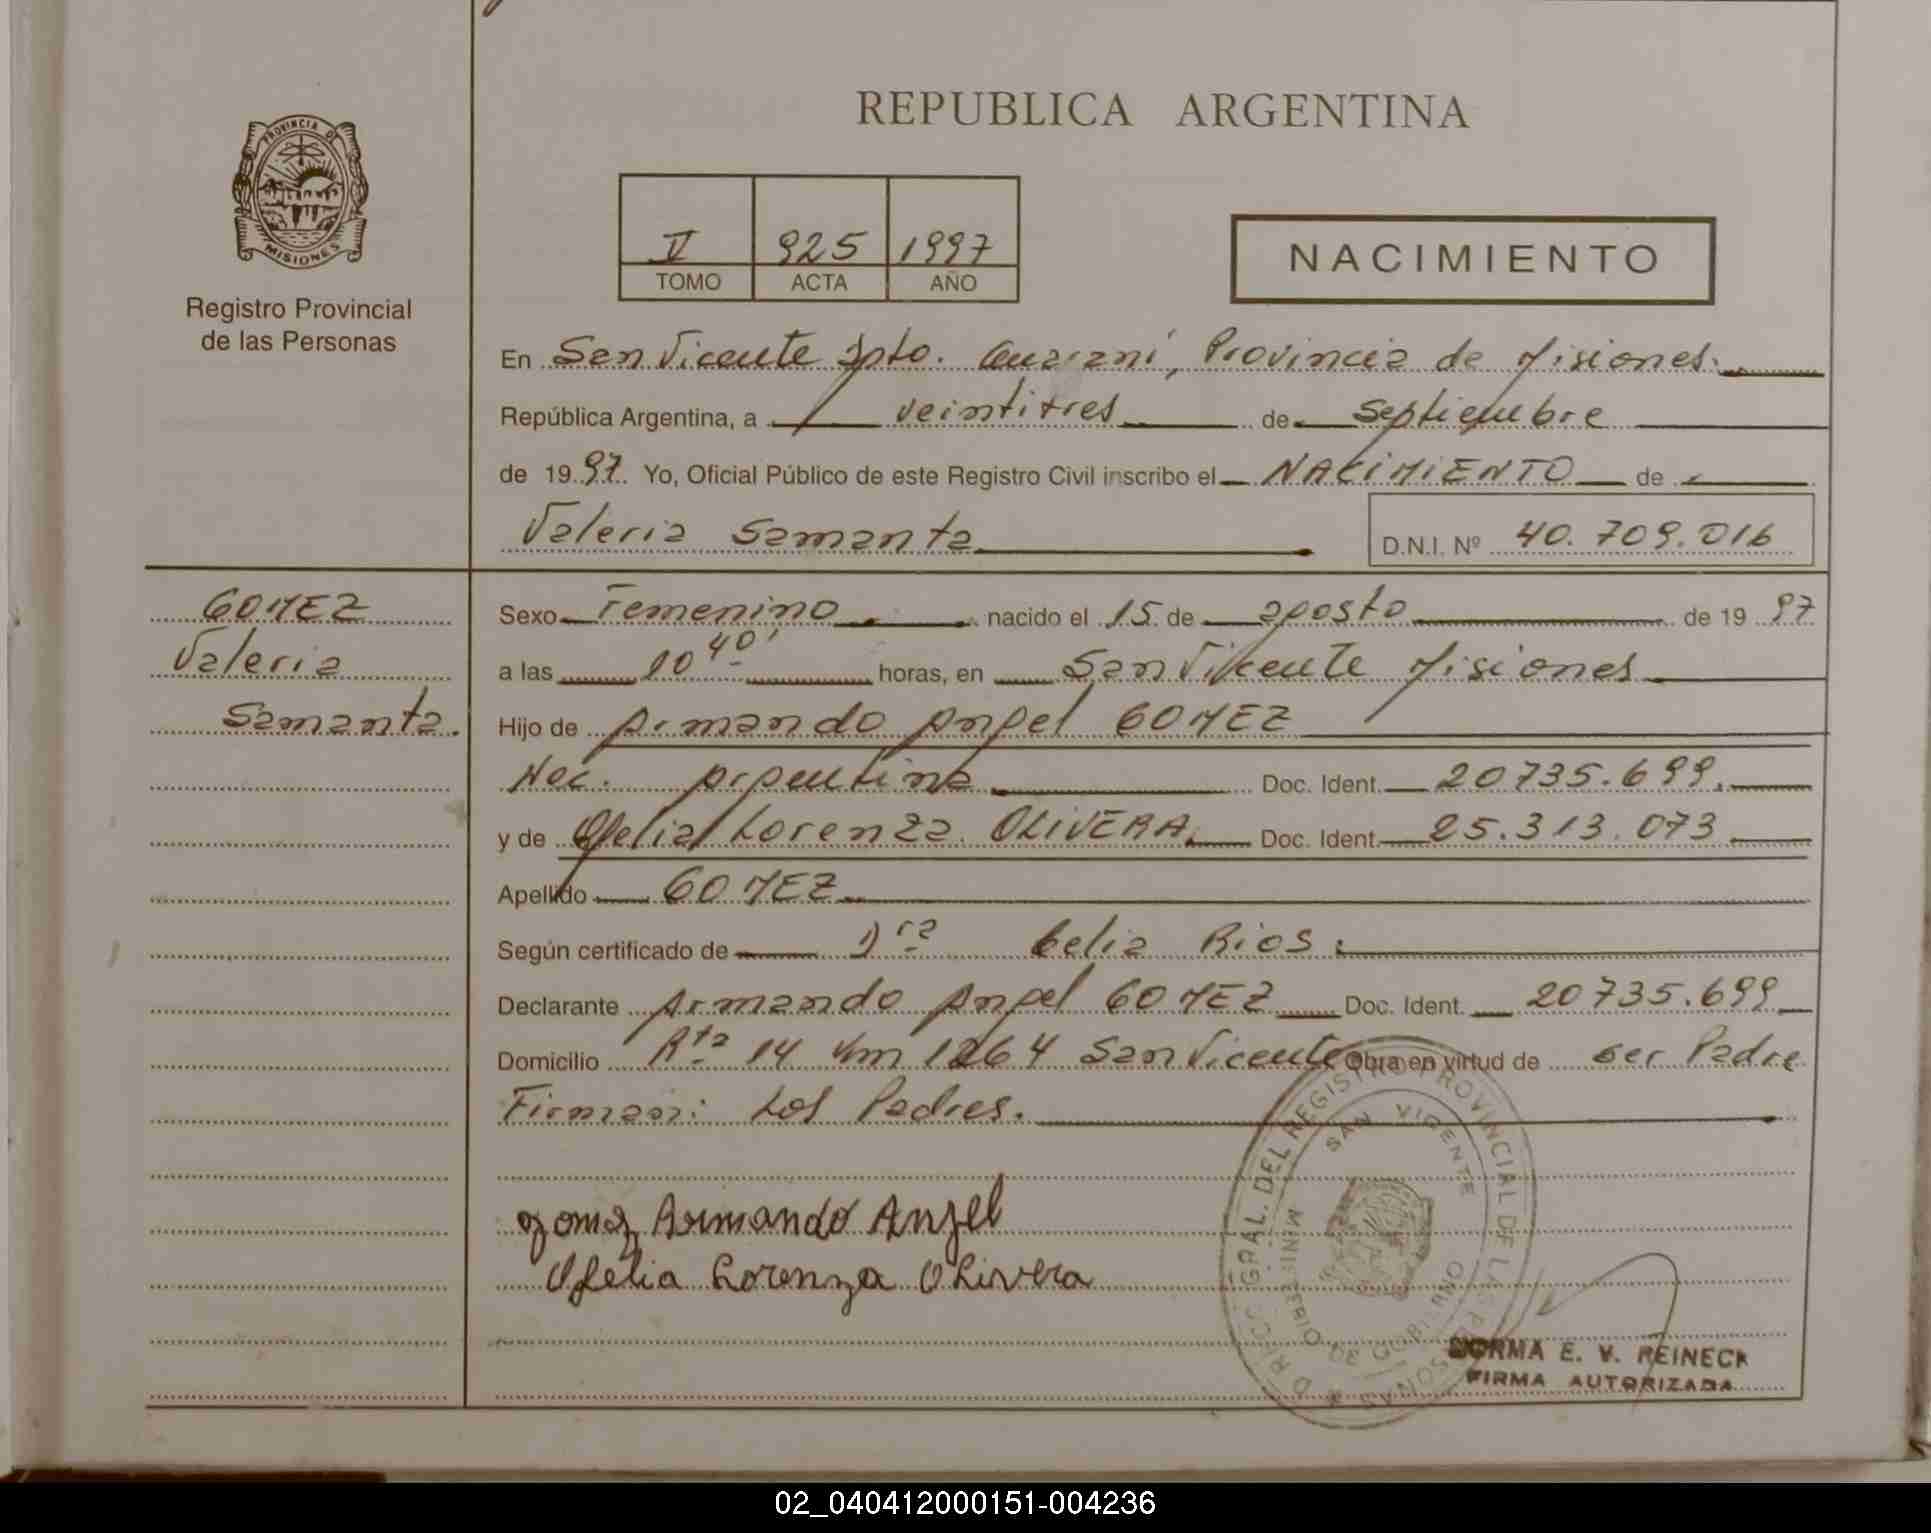 REPUBLICA ARGENTINA
PROVINCIA DE
MISIONES
Registro Provincial
de las Personas
V 925 1997
TOMO ACTA AÑO
NACIMIENTO
En San Vicente Dpto. Guaraní, Provincia de Misiones.
República Argentina, a veintitres de Septiembre
de 19 97 Yo, Oficial Público de este Registro Civil inscribo el NACIMIENTO de
Valeria Samanta D.N.I. Nº 40.709.016
GOMEZ
Valeria
Samanta.
Sexo Femenino nacido el 15 de agosto de 19 97
a las 10 40' horas, en San Vicente Misiones
Hijo de Armando Angel GOMEZ
Nac. Argentina Doc. Ident. 20735.699.
y de Ofelia Lorenza OLIVERA. Doc. Ident. 25.313.073
Apellido GOMEZ
Según certificado de Dra Celia Rios.
Declarante Armando Angel GOMEZ Doc. Ident. 20735.699
Domicilio Rta 14 Km 1264 San Vicente Obra en virtud de ser Padre
Firman: Los Padres.
Gomez Armando Angel
Ofelia Lorenza Olivera
GRAL. DEL REGISTRO PROVINCIAL DE LAS PERSONAS
SAN VICENTE
MINISTERIO DE GOBIERNO
NORMA E. V. REINECK
FIRMA AUTORIZADA
02_040412000151-004236